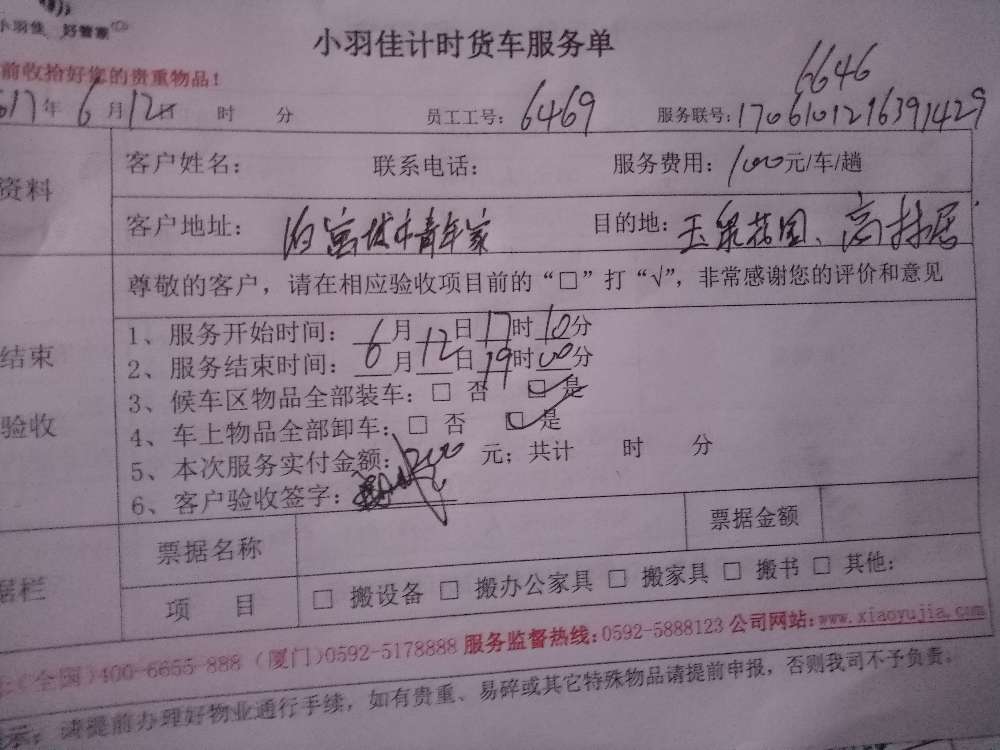 小羽佳 好管家
小羽佳计时货车服务单
前收拾好您的贵重物品！
6646
017年 6月 12日 时 分 员工工号：6469 服务联号：1706101216391429
资料 客户姓名： 联系电话： 服务费用：100元/车/趟
客户地址：城市青年家 目的地：玉泉花园、高林居
尊敬的客户，请在相应验收项目前的“□”打“√”，非常感谢您的评价和意见
结束
验收
1、服务开始时间：6月12日17时10分
2、服务结束时间：6月12日19时00分
3、候车区物品全部装车：□ 否 ☑ 是
4、车上物品全部卸车：□ 否 ☑ 是
5、本次服务实付金额：200 元；共计 时 分
6、客户验收签字：
据栏 票据名称 票据金额
项 目 □ 搬设备 □ 搬办公家具 □ 搬家具 □ 搬书 □ 其他：
（全国）400-6655-888（厦门）0592-5178888 服务监督热线：0592-5888123 公司网站：www.xiaoyujia.com
示：请提前办理好物业通行手续，如有贵重、易碎或其它特殊物品请提前申报，否则我司不予负责。